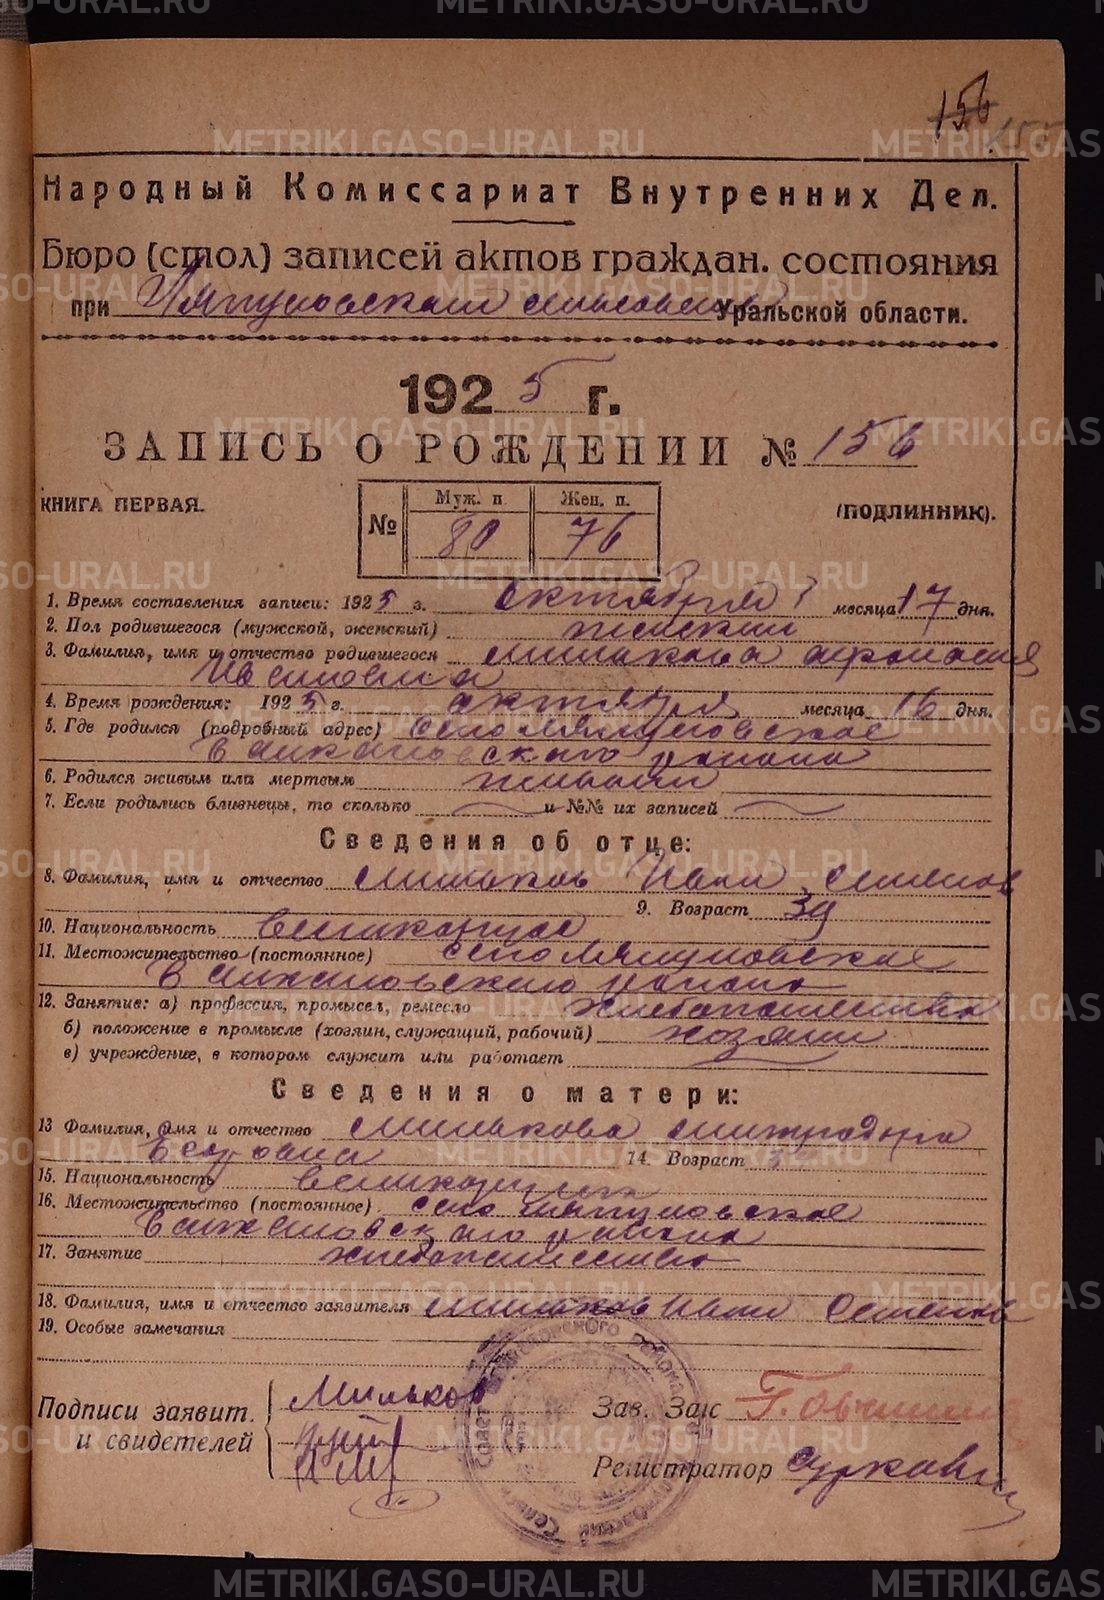 156
Народный Комиссариат Внутренних Дел.
Бюро (стол) записей актов граждан. состояния
при Ляпуновском сельсовете Уральской области.
1925 г.
ЗАПИСЬ О РОЖДЕНИИ № 156
КНИГА ПЕРВАЯ. (ПОДЛИННИК).
№ Муж. п. Жен. п.
80 76
1. Время составления записи: 1925 г. октября месяца 17 дня.
2. Пол родившегося (мужской, женский) женский
3. Фамилия, имя и отчество родившегося Милькова
Ивановна
4. Время рождения: 1925 г. октября месяца 16 дня.
5. Где родился (подробный адрес) село Ляпуновское
района
6. Родился живым или мертвым живым
7. Если родились близнецы, то сколько и №№ их записей
Сведения об отце:
8. Фамилия, имя и отчество Мильков Иван Семенов
9. Возраст 39
10. Национальность великорус
11. Местожительство (постоянное) село Ляпуновское
района
12. Занятие: а) профессия, промысел, ремесло хлебопашество
б) положение в промысле (хозяин, служащий, рабочий) хозяин
в) учреждение, в котором служит или работает
Сведения о матери:
13 Фамилия, имя и отчество Милькова
14. Возраст
15. Национальность
16. Местожительство (постоянное) село Ляпуновское
района
17. Занятие хлебопашество
18. Фамилия, имя и отчество заявителя Мильков Иван Семенов
19. Особые замечания
Подписи заявит. Мильков Зав. Загс
и свидетелей
Регистратор
METRIKI.GASO-URAL.RU